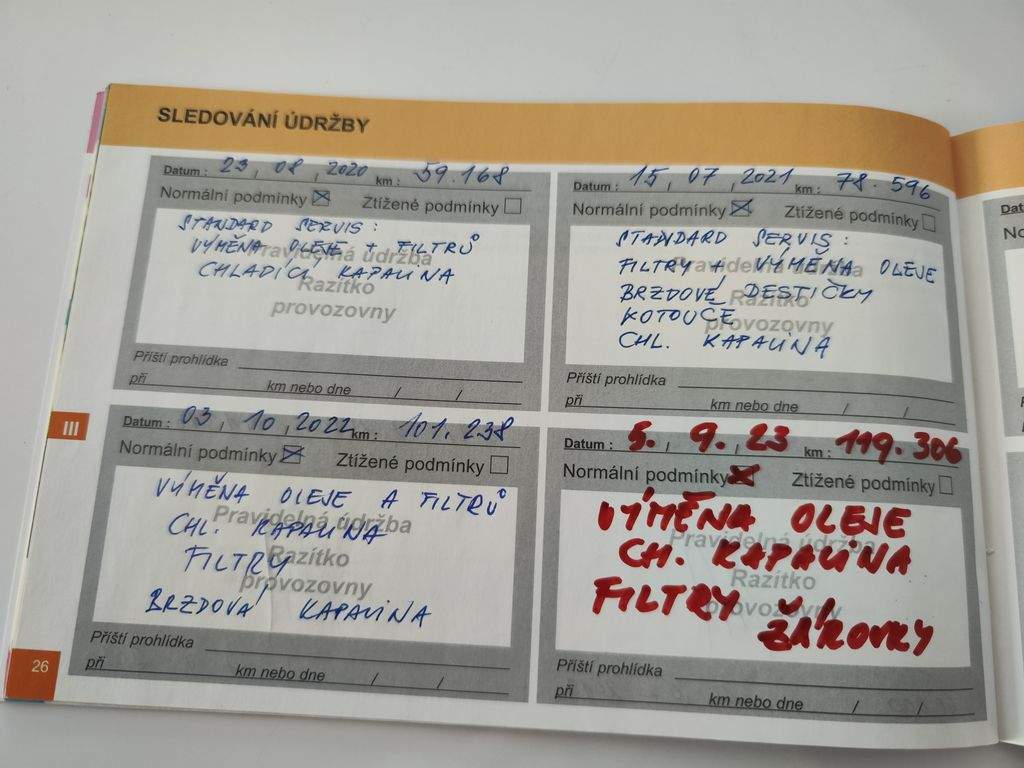 SLEDOVÁNÍ ÚDRŽBY
Datum : 23, 08, 2020 km : 59.168
Normální podmínky ☒ Ztížené podmínky ☐
STANDARD SERVIS :
VÝMĚNA OLEJE + FILTRŮ
CHLADÍCÍ KAPALINA
Pravidelná údržba
Razítko
provozovny
Příští prohlídka
při km nebo dne / /
Datum : 15, 07, 2021 km : 78.596
Normální podmínky ☒ Ztížené podmínky ☐
STANDARD SERVIS :
FILTRY + VÝMĚNA OLEJE
BRZDOVÉ DESTIČKY
KOTOUČE
CHL. KAPALINA
Pravidelná údržba
Razítko
provozovny
Příští prohlídka
při km nebo dne / /
III
Datum : 03, 10, 2022 km : 101.238
Normální podmínky ☒ Ztížené podmínky ☐
VÝMĚNA OLEJE A FILTRŮ
CHL. KAPALINA
FILTRY
BRZDOVÁ KAPALINA
Pravidelná údržba
Razítko
provozovny
Příští prohlídka
při km nebo dne / /
Datum : 5. 9. 23 km : 119.306
Normální podmínky ☒ Ztížené podmínky ☐
VÝMĚNA OLEJE
CH. KAPALINA
FILTRY ŽÁROVKY
Pravidelná údržba
Razítko
provozovny
Příští prohlídka
při km nebo dne / /
26